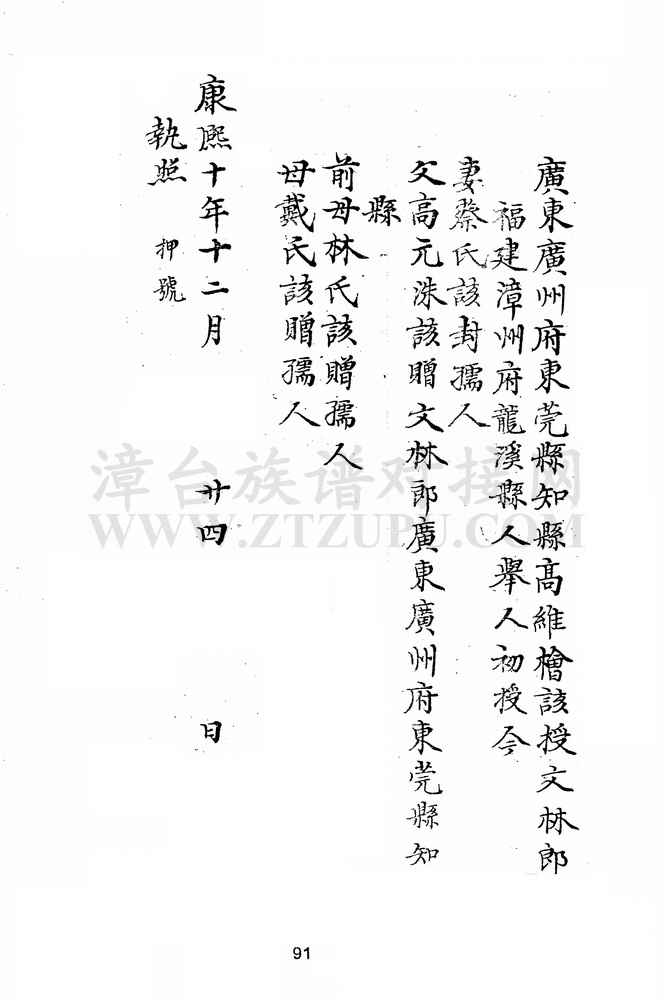 廣東廣州府東莞縣知縣高維檜該授文林郎
福建漳州府龍溪縣人舉人初授今
妻蔡氏該封孺人
父高元洙該贈文林郎廣東廣州府東莞縣知
縣
前母林氏該贈孺人
母戴氏該贈孺人
康熙十年十二月 廿四 日
執照 押號
漳台族谱对接网
WWW.ZTZUPU.COM
91